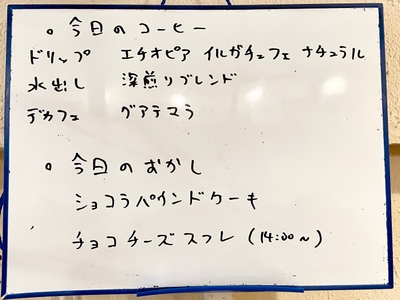 。今日のコーヒー
ドリップ エチオピア イルガチェフェ ナチュラル
水出し 深煎りブレンド
デカフェ グアテマラ
。今日のおかし
ショコラパインドケーキ
チョコチーズスフレ (14:00〜)